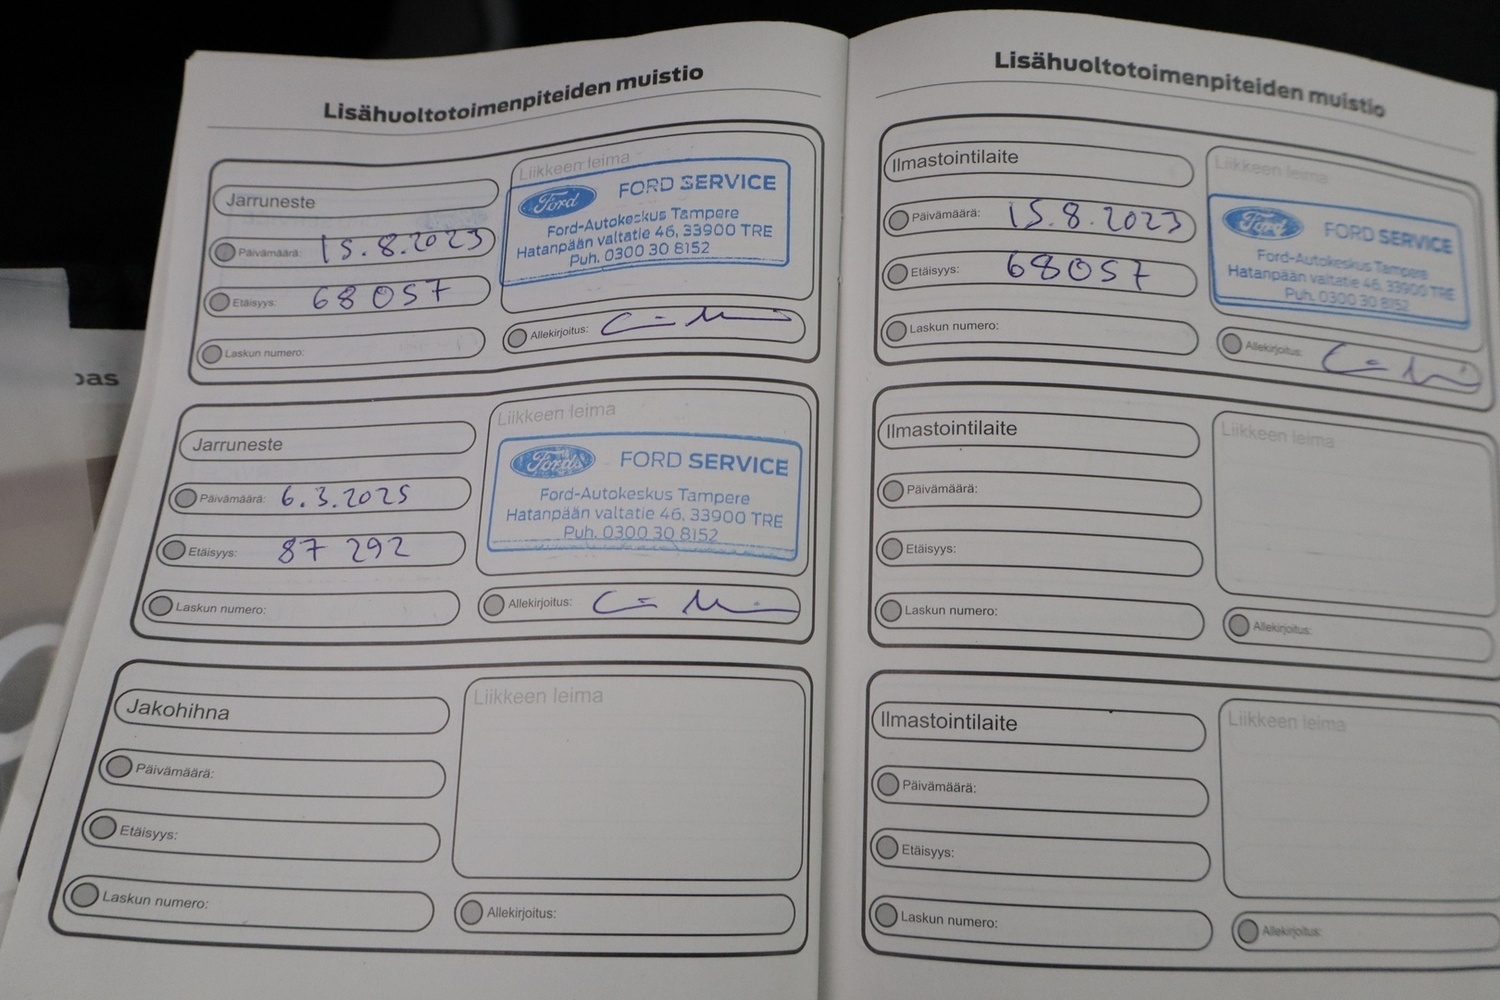 Lisähuoltotoimenpiteiden muistio
Jarruneste
Päivämäärä: 15.8.2023
Etäisyys: 68057
Laskun numero:
Liikkeen leima
Ford
FORD SERVICE
Ford-Autokeskus Tampere
Hatanpään valtatie 46, 33900 TRE
Puh. 0300 30 8152
Allekirjoitus:
Jarruneste
Päivämäärä: 6.3.2025
Etäisyys: 87 292
Laskun numero:
Liikkeen leima
Ford
FORD SERVICE
Ford-Autokeskus Tampere
Hatanpään valtatie 46, 33900 TRE
Puh. 0300 30 8152
Allekirjoitus:
Jakohihna
Päivämäärä:
Etäisyys:
Laskun numero:
Liikkeen leima
Allekirjoitus:
Lisähuoltotoimenpiteiden muistio
Ilmastointilaite
Päivämäärä: 15.8.2023
Etäisyys: 68057
Laskun numero:
Liikkeen leima
Ford
FORD SERVICE
Ford-Autokeskus Tampere
Hatanpään valtatie 46, 33900 TRE
Puh. 0300 30 8152
Allekirjoitus:
Ilmastointilaite
Päivämäärä:
Etäisyys:
Laskun numero:
Liikkeen leima
Allekirjoitus:
Ilmastointilaite
Päivämäärä:
Etäisyys:
Laskun numero:
Liikkeen leima
Allekirjoitus: